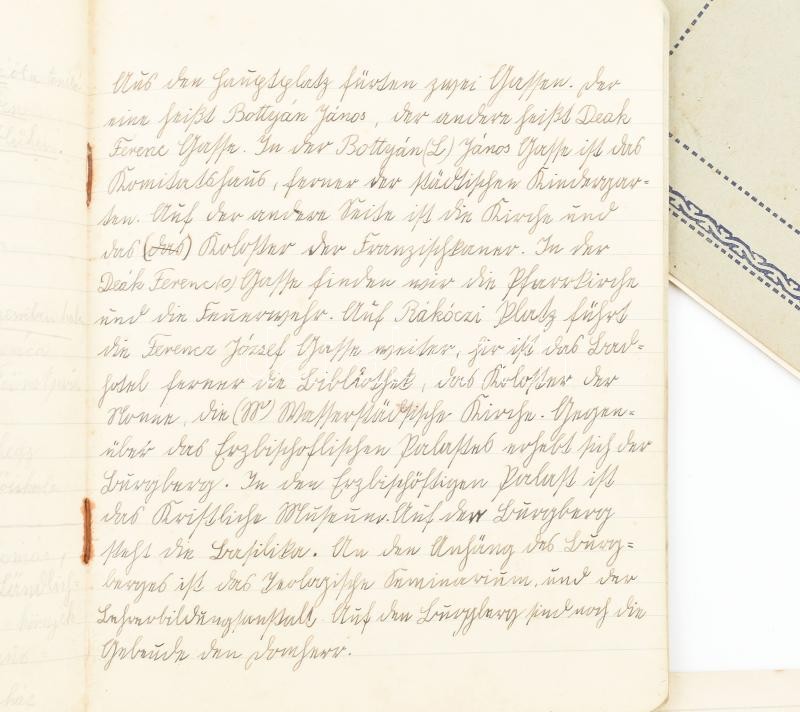 Aus den Hauptplatz fürten zwei Gassen. Der
eine heißt Bottyán János, der andere heißt Deak
Ferenc Gasse. In der Bottyán (L.) János Gasse ist das
Komitatshaus, ferner der städtischen Kindergar-
ten. Auf der andere Seite ist die Kirche und
das (das) Koloster der Franzischkaner. In der
Deák Ferenc Gasse finden wir die Pfarrkirche
und die Feuerwehr. Auf Rákóczi Platz führt
die Ferencz József Gasse weiter, hir ist das Bad-
hotel ferner die Bibliothet, das Koloster der
Nonne, die Wasserstädtische Kirche. Gegen-
über das Erzbischoflischen Palastes erhebt sich der
Burgberg. In den Erzbischöftigen Palast ist
das Kristliche Museum. Auf der Burgberg
steht die Basilika. An den Anhäng des Burg=
berges ist das Teologische Seminarium, und der
Lehrerbildungsanstalt. Auf den Burgberg sind noch die
Gebeude den Domherr.